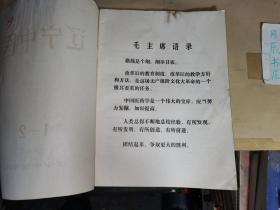 辽宁中医
1—2
毛主席语录
路线是个纲，纲举目张。
改革旧的教育制度，改革旧的教学方针
和方法，是这场无产阶级文化大革命的一个
极其重要的任务。
中国医药学是一个伟大的宝库，应当努
力发掘，加以提高。
人类总得不断地总结经验，有所发现，
有所发明，有所创造，有所前进。
团结起来，争取更大的胜利。